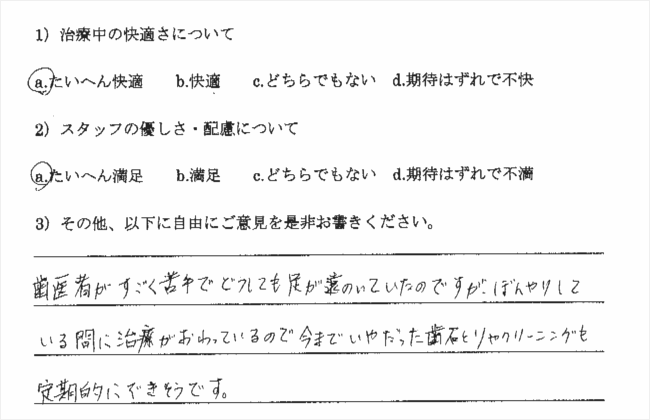 1）治療中の快適さについて
a.たいへん快適　b.快適　c.どちらでもない　d.期待はずれで不快
2）スタッフの優しさ・配慮について
a.たいへん満足　b.満足　c.どちらでもない　d.期待はずれで不満
3）その他、以下に自由にご意見を是非お書きください。
歯医者がすごく苦手でどうしても足が遠のいていたのですが、ぼんやりして
いる間に治療がおわっているので今までいやだった歯石とりやクリーニングも
定期的にできそうです。